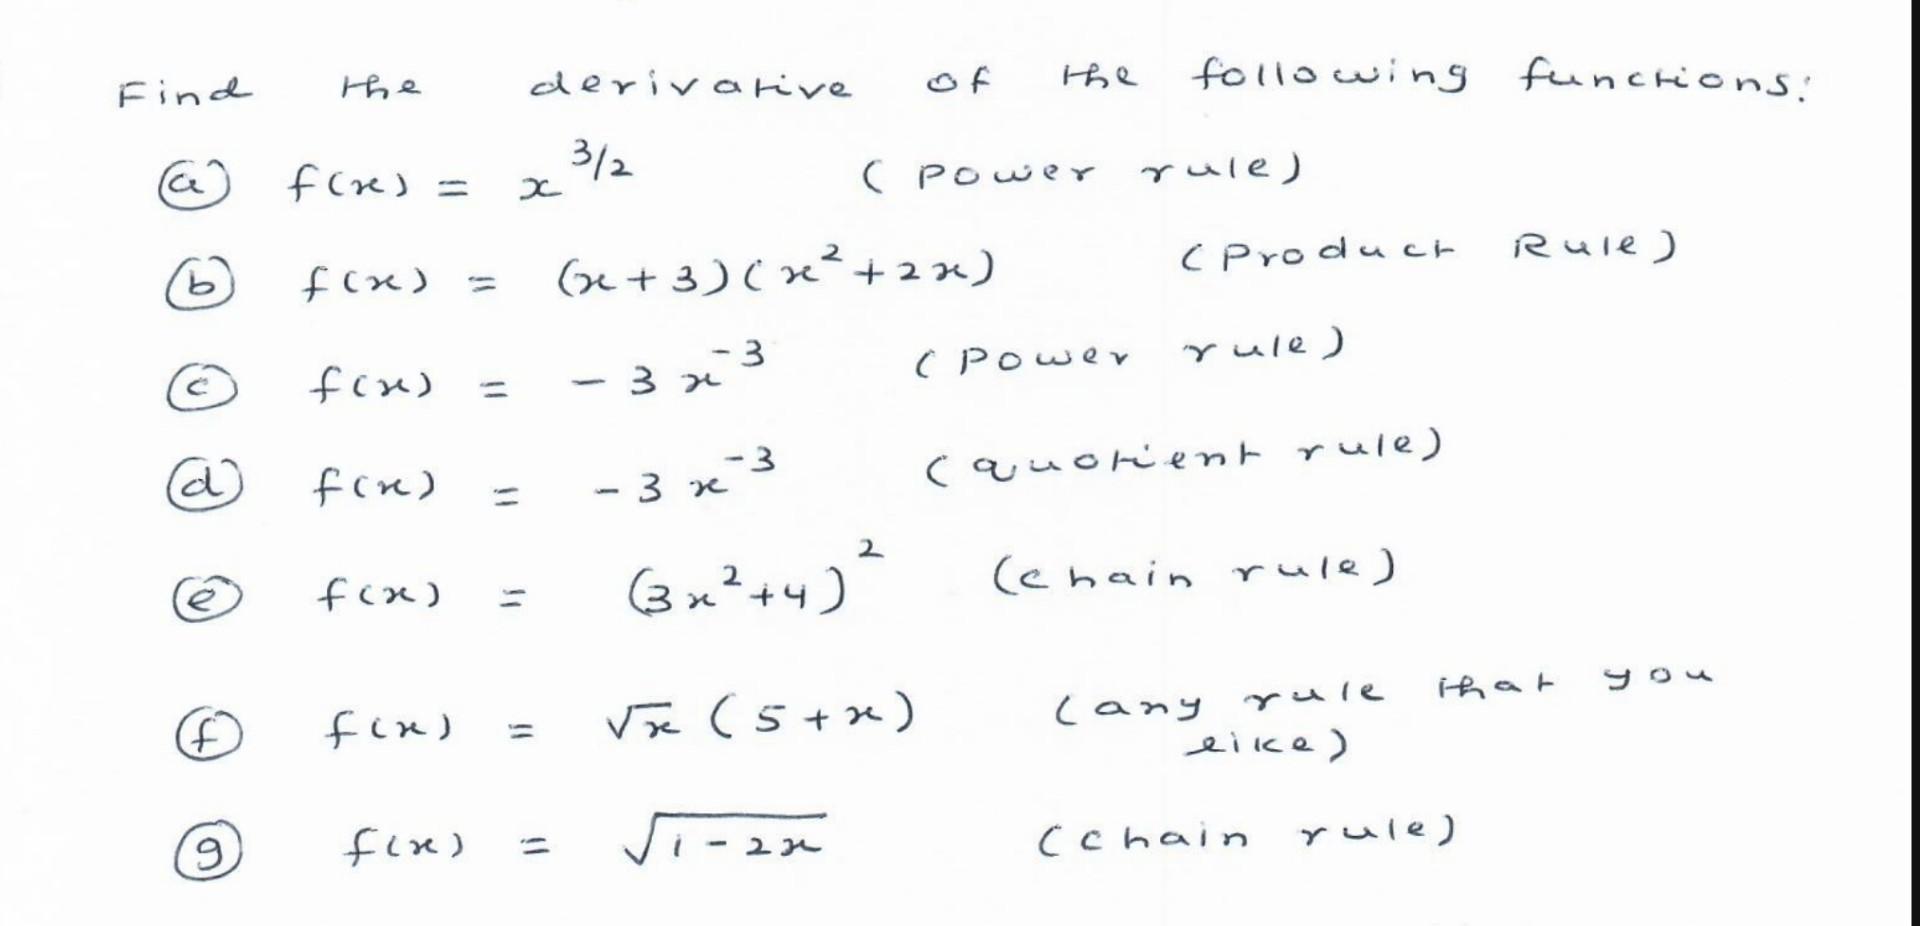 Find the derivative of the following functions:
(a) f(x) = x^3/2 (power rule)
(b) f(x) = (x+3)(x²+2x) (Product Rule)
(c) f(x) = -3x^-3 (Power rule)
(d) f(x) = -3x^-3 (quotient rule)
(e) f(x) = (3x²+4)² (chain rule)
(f) f(x) = √x (5+x) (any rule that you
like)
(g) f(x) = √(1-2x) (chain rule)